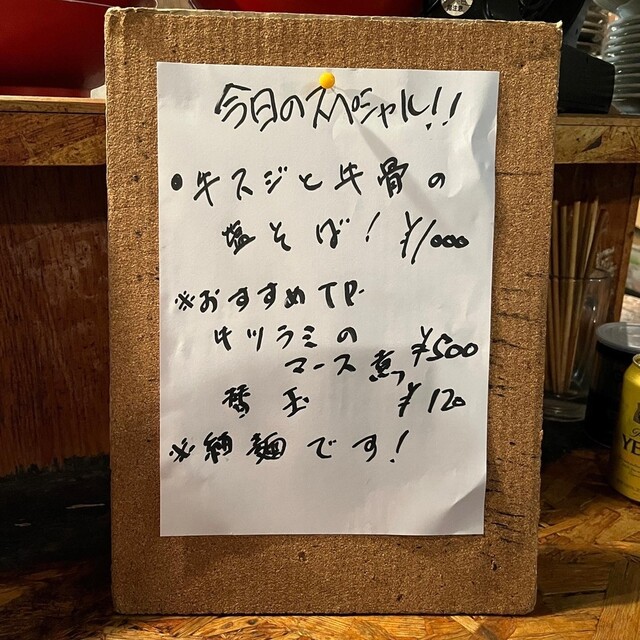 今日のスペシャル!!
●牛スジと牛骨の
塩そば! ¥1000
※おすすめTP.
牛ツラミの
マース煮 ¥500
替玉 ¥120
※細麺です!
YE